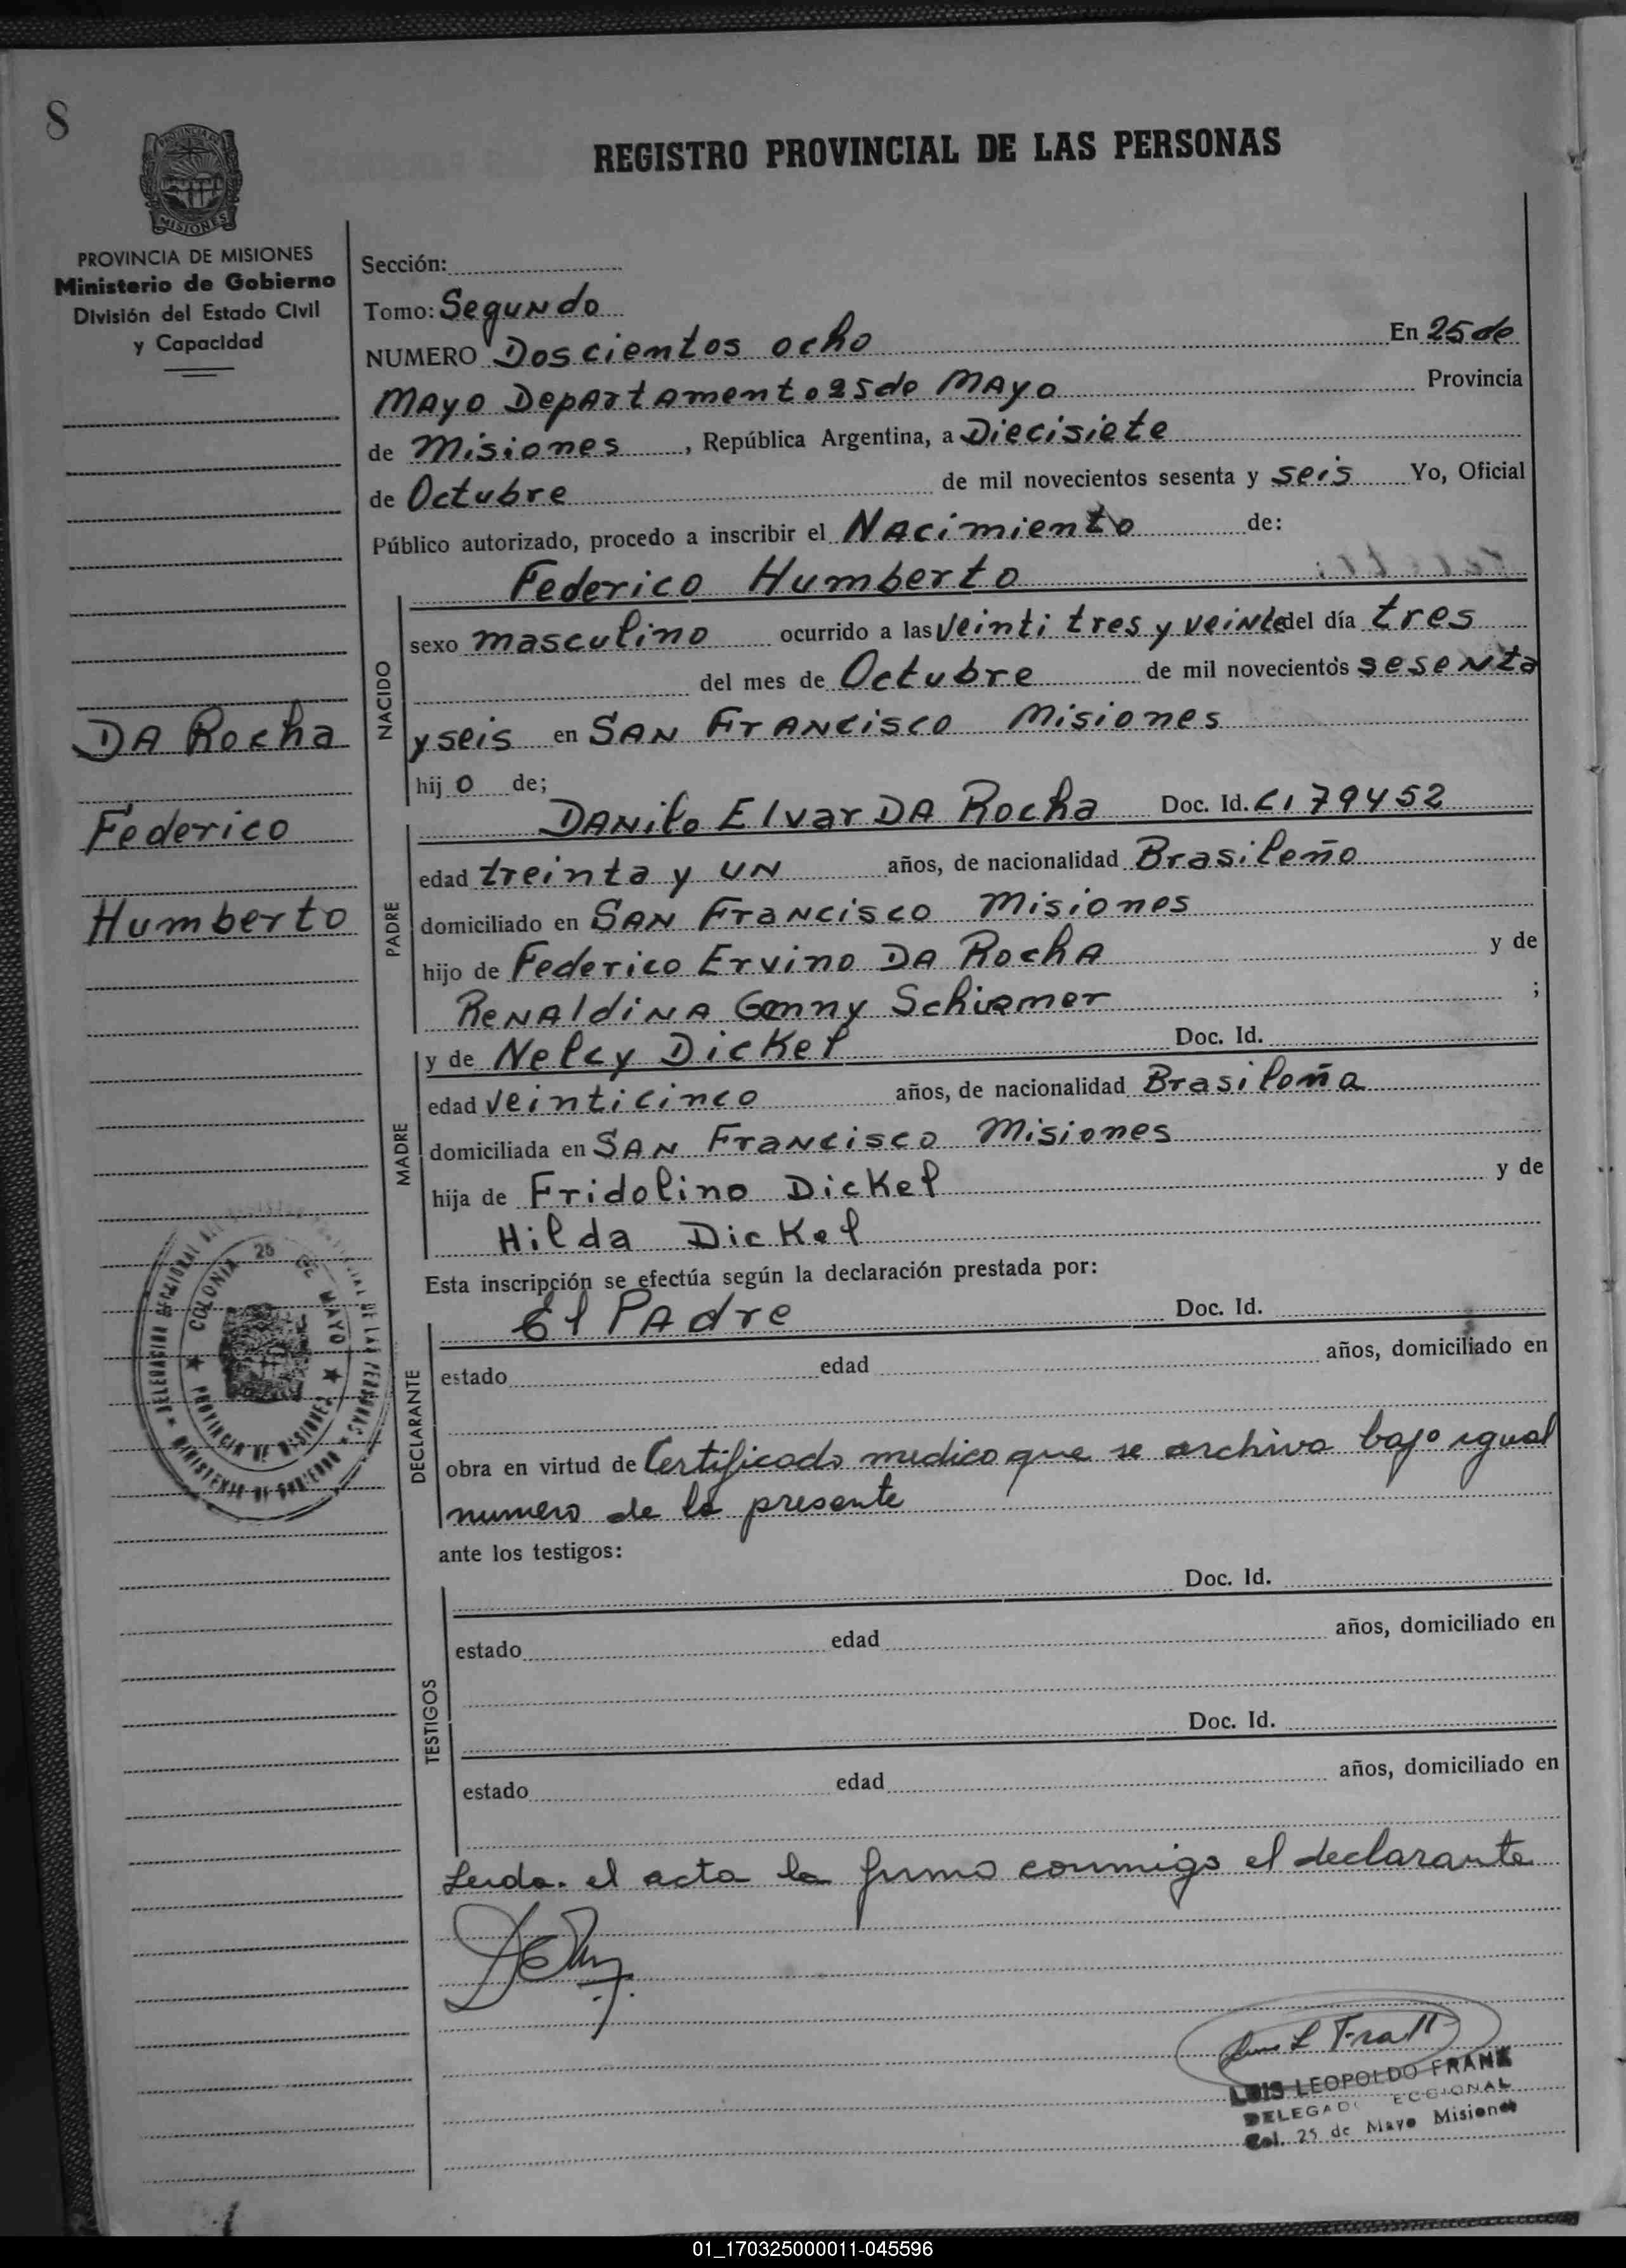 8
REGISTRO PROVINCIAL DE LAS PERSONAS
PROVINCIA DE MISIONES
Ministerio de Gobierno
División del Estado Civil
y Capacidad
Sección:
Tomo: Segundo
NUMERO Doscientos ocho En 25 de
Mayo Departamento 25 de Mayo Provincia
de Misiones, República Argentina, a Diecisiete
de Octubre de mil novecientos sesenta y seis Yo, Oficial
Público autorizado, procedo a inscribir el Nacimiento de:
Federico Humberto
NACIDO
sexo masculino ocurrido a las veinti tres y veinte del día tres
del mes de Octubre de mil novecientos sesenta
y seis en San Francisco Misiones
hijo de;
DA Rocha
Federico
Humberto
PADRE
Danilo Elvar DA Rocha Doc. Id. CI 79452
edad treinta y un años, de nacionalidad Brasileño
domiciliado en San Francisco Misiones
hijo de Federico Ervino DA Rocha y de
Renaldina Genny ;
MADRE
y de Nelcy Dickel Doc. Id.
edad veinticinco años, de nacionalidad Brasileña
domiciliada en San Francisco Misiones
hija de Fridolino Dickel y de
Hilda Dickel
COLONIA 25 DE MAYO
PROVINCIA DE MISIONES
MINISTERIO DE GOBIERNO
Esta inscripción se efectúa según la declaración prestada por:
DECLARANTE
El Padre Doc. Id.
estado edad años, domiciliado en
obra en virtud de Certificado medico que se archiva bajo igual
numero de la presente
ante los testigos:
TESTIGOS
Doc. Id.
estado edad años, domiciliado en
Doc. Id.
estado edad años, domiciliado en
Leida el acta la firma conmigo el declarante
LUIS LEOPOLDO FRANK
Col. 25 de Mayo Misiones
01_170325000011-045596